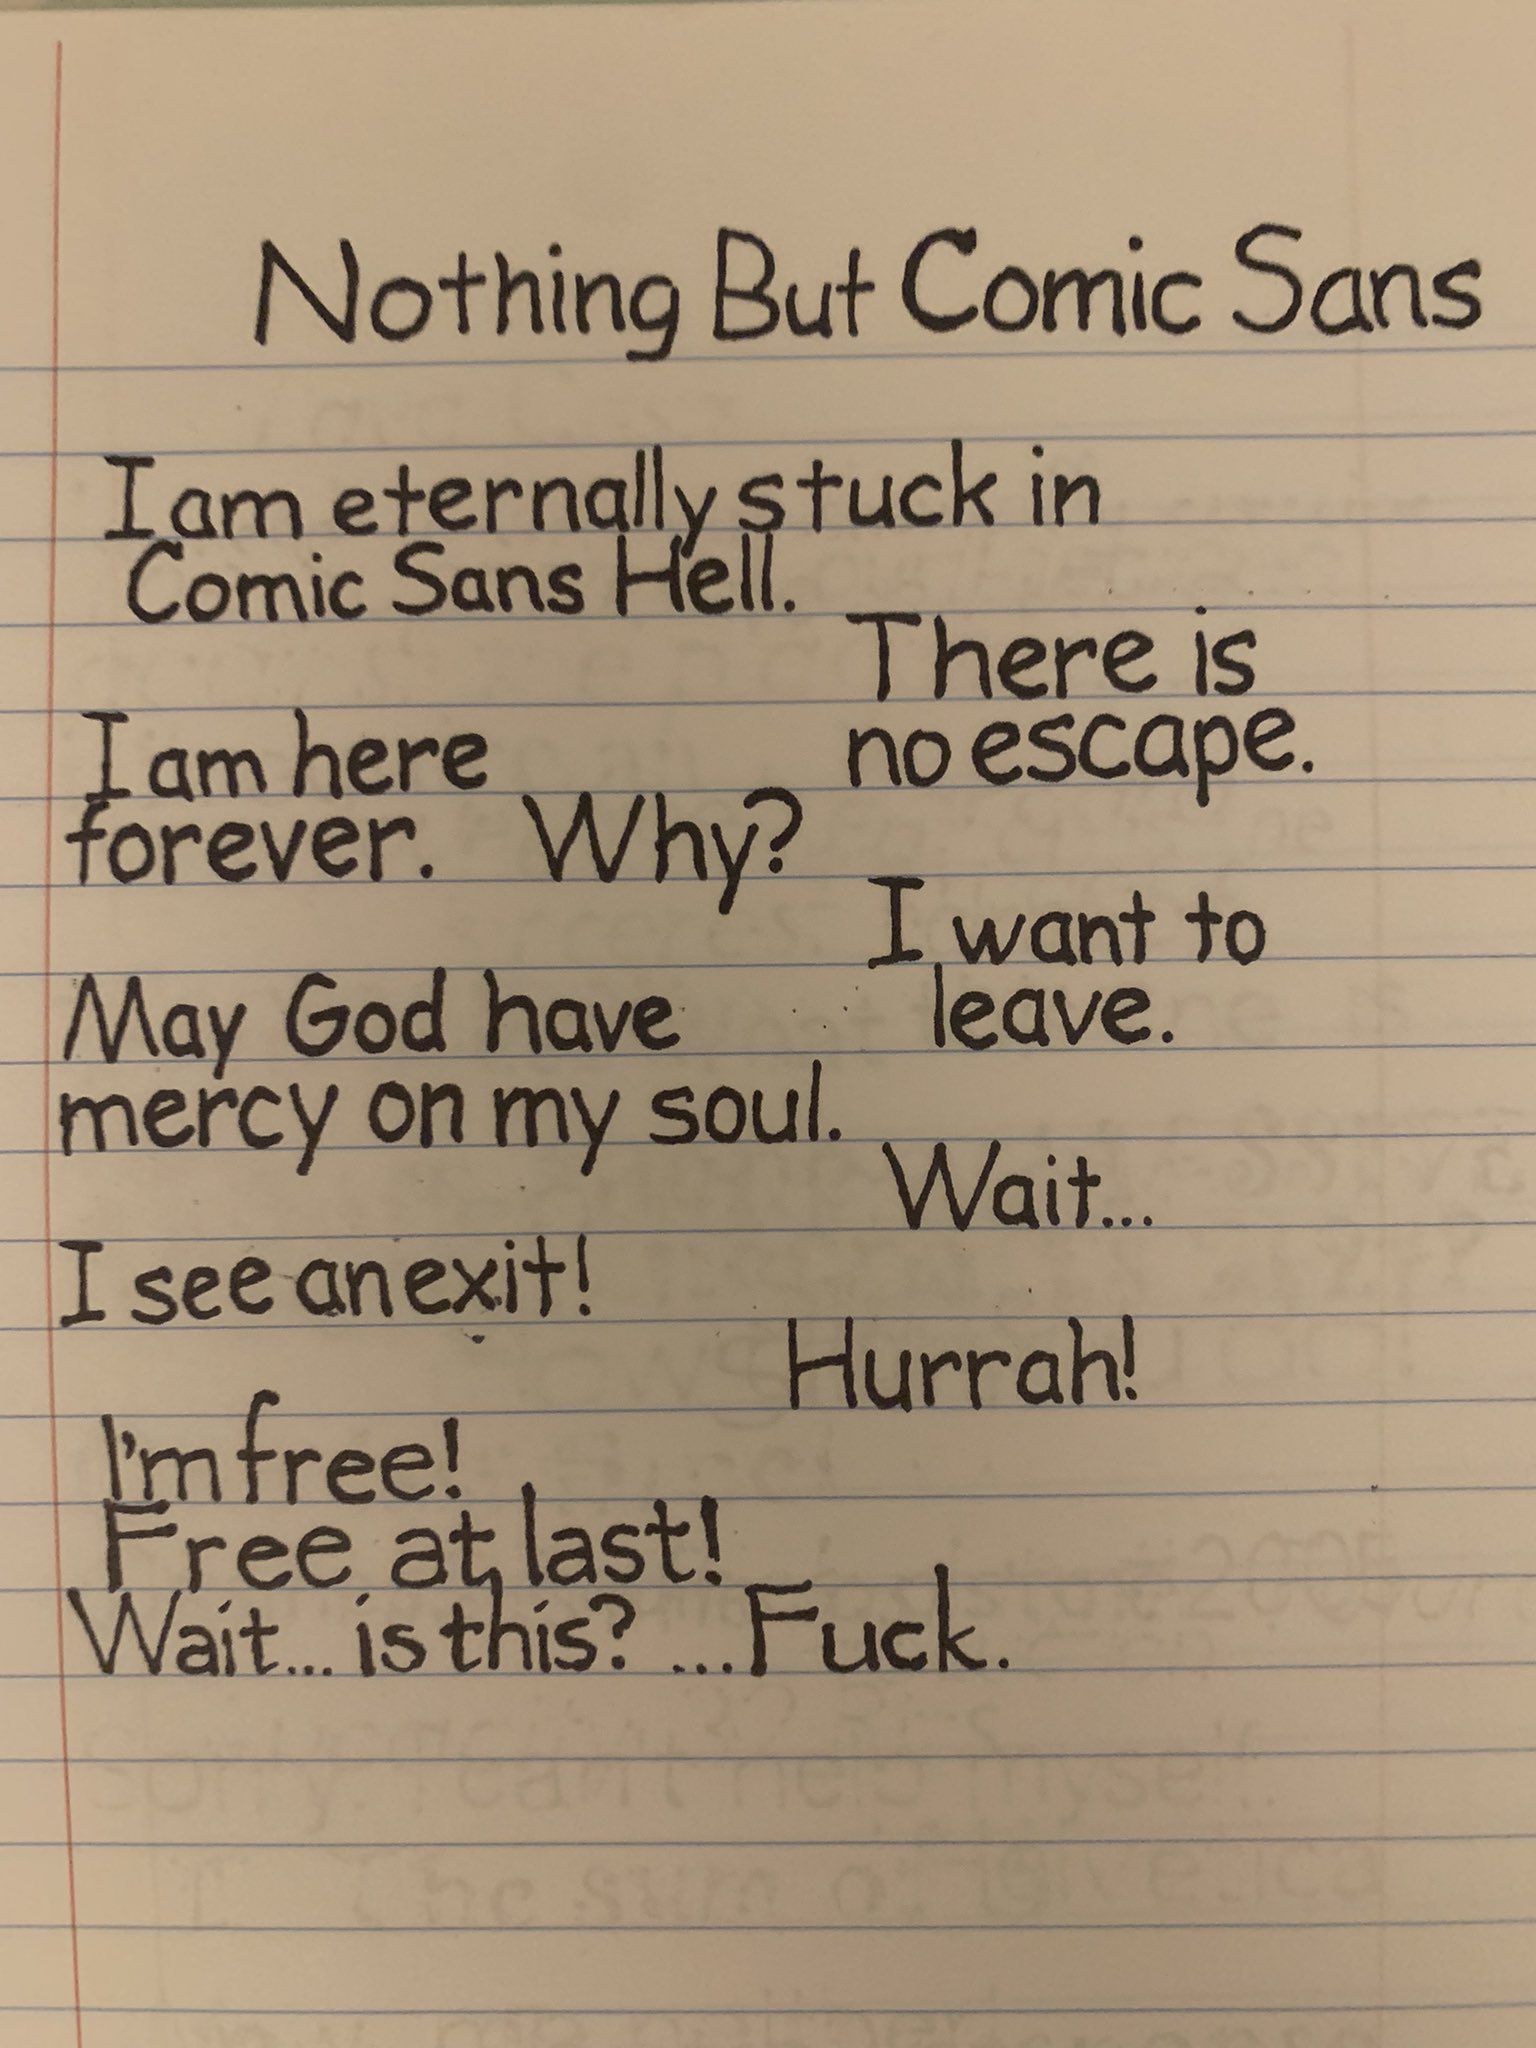 Nothing But Comic Sans
I am eternally stuck in
Comic Sans Hell.
There is
no escape.
I am here
forever. Why?
I want to
leave.
May God have
mercy on my soul.
Wait...
I see an exit!
Hurrah!
I'm free!
Free at last!
Wait... is this? ...Fuck.